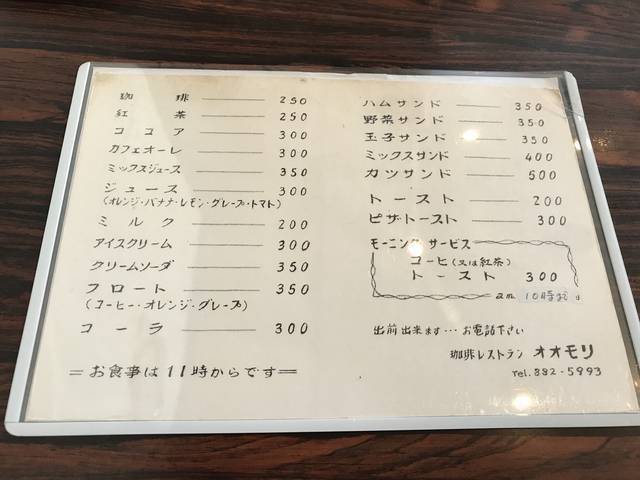 珈琲 250
紅茶 250
ココア 300
カフェオーレ 300
ミックスジュース 350
ジュース 300
(オレンジ・バナナ・レモン・グレープ・トマト)
ミルク 200
アイスクリーム 300
クリームソーダ 350
フロート 350
(コーヒー・オレンジ・グレープ)
コーラ 300
=お食事は11時からです=
ハムサンド 350
野菜サンド 350
玉子サンド 350
ミックスサンド 400
カツサンド 500
トースト 200
ピザトースト 300
モーニングサービス
コーヒ(又は紅茶)
トースト 300
am 10時
出前出来ます…お電話下さい
珈琲レストラン オオモリ
Tel. 882-5993